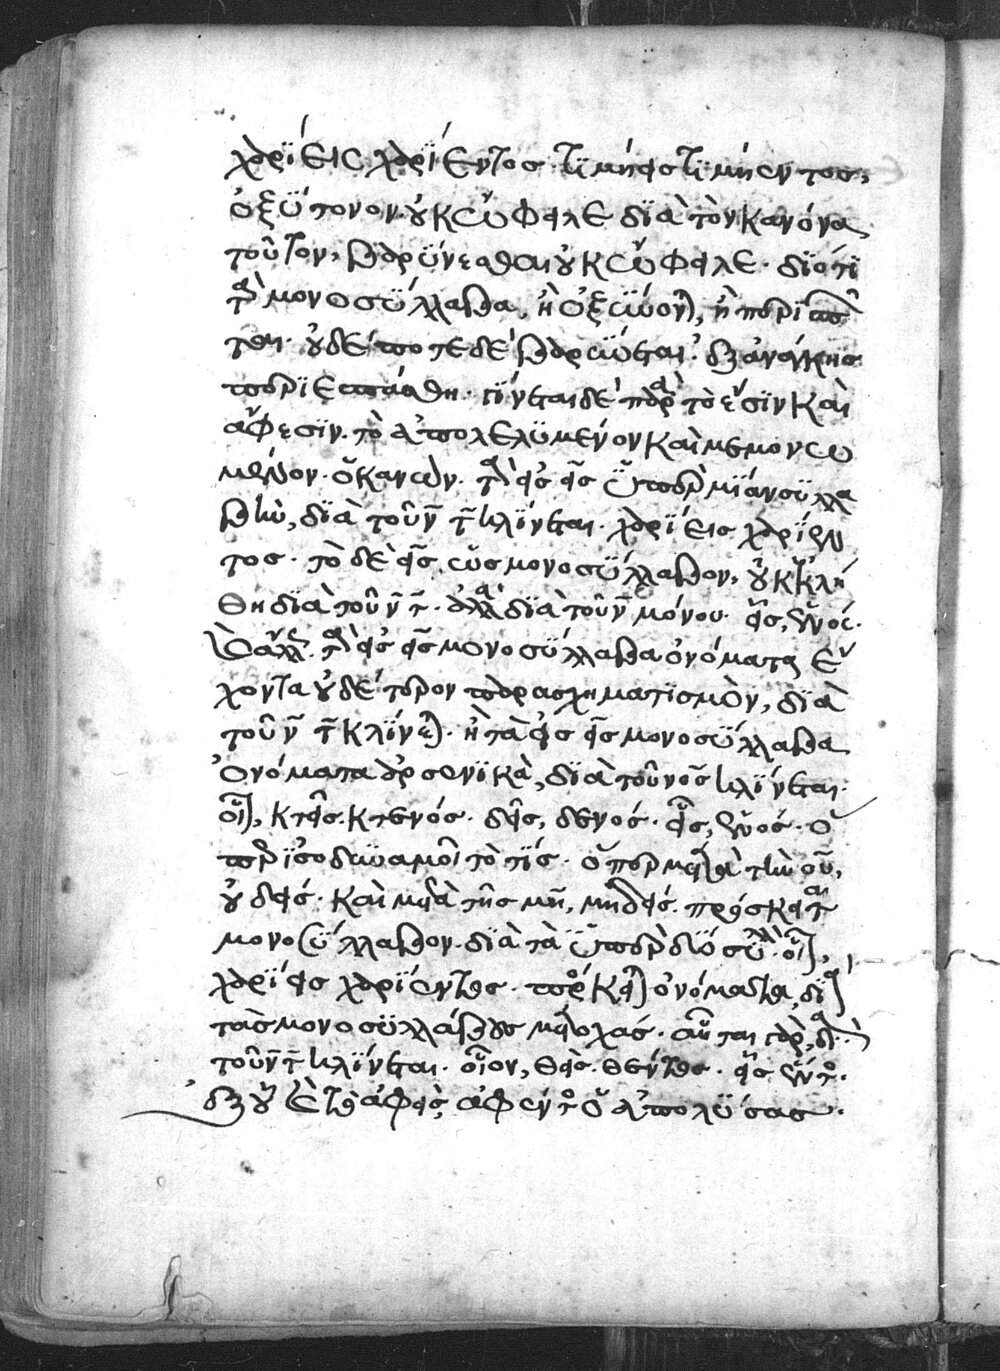 χαρίεις χαρίεντος· τιμήεις τιμήεντος,
ὀξύτονον· οὐκ ὤφειλε διὰ τὸν κανόνα
τοῦτον, βαρύνεσθαι οὐκ ὤφειλε· διότι
τὰ μονοσύλλαβα, ἢ ὀξύνονται, ἢ περισπῶν
ται· οὐδέποτε δὲ βαρύνεται· ἐξ ἀνάγκης
περιεσπάσθη· γίνεται δὲ παρὰ τὸ
ἄφεσιν· τὸ ἀπολελυμένον καὶ μεμονω
μένον· ὁ κανών· τὰ εἰς εις ὑπὲρ μίαν συλλα
βὴν, διὰ τοῦ ντ κλίνεται· χαρίεις χαρίεν
τος· τὸ δὲ εἷς ὡς μονοσύλλαβον, οὐκ ἐκλί
θη διὰ τοῦ ντ· ἀλλὰ διὰ τοῦ ν μόνου· εἷς, ἑνός·
τὰ εἰς εις μονοσύλλαβα ὀνόματα ἔ
χοντα οὐδέτερον παρασχηματισμὸν, διὰ
τοῦ ντ κλίνεται· ἢ τὰ εἰς εις μονοσύλλαβα
ὀνόματα ἀρσενικὰ, διὰ τοῦ νος κλίνεται·
οἷον, κτείς κτενός· δείς, δενός· εἷς, ἑνός· ὁ
τὸ τίς· ὅπερ μετὰ τὴν οὐ,
οὐδείς· καὶ μετὰ τῆς μη, μηδείς· πρόσκειται
μονοσύλλαβον· διὰ τὰ ὑπὲρ δύο συλλαβὰς· οἷον,
χαρίεις χαρίεντος· πρόσκειται ὀνόματα, διὰ
τὰς μονοσυλλάβους μετοχάς· αὗται γὰρ, διὰ
τοῦ ντ κλίνεται· οἷον, θείς θέντος· εἷς ἕντος·
ἐξ οὗ ἀφεὶς, ἀφέντος ὁ ἀπολύσας·